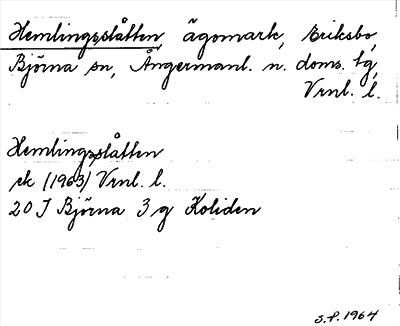 Hemlingsslåtten, ägomark, Eriksbo,
Björna sn, Ångermanl. n. doms. tg,
Vrnl. l.
Hemlingsslåtten
ek (1963) Vrnl. l.
20 J Björna 3 g Koliden
S.P. 1964